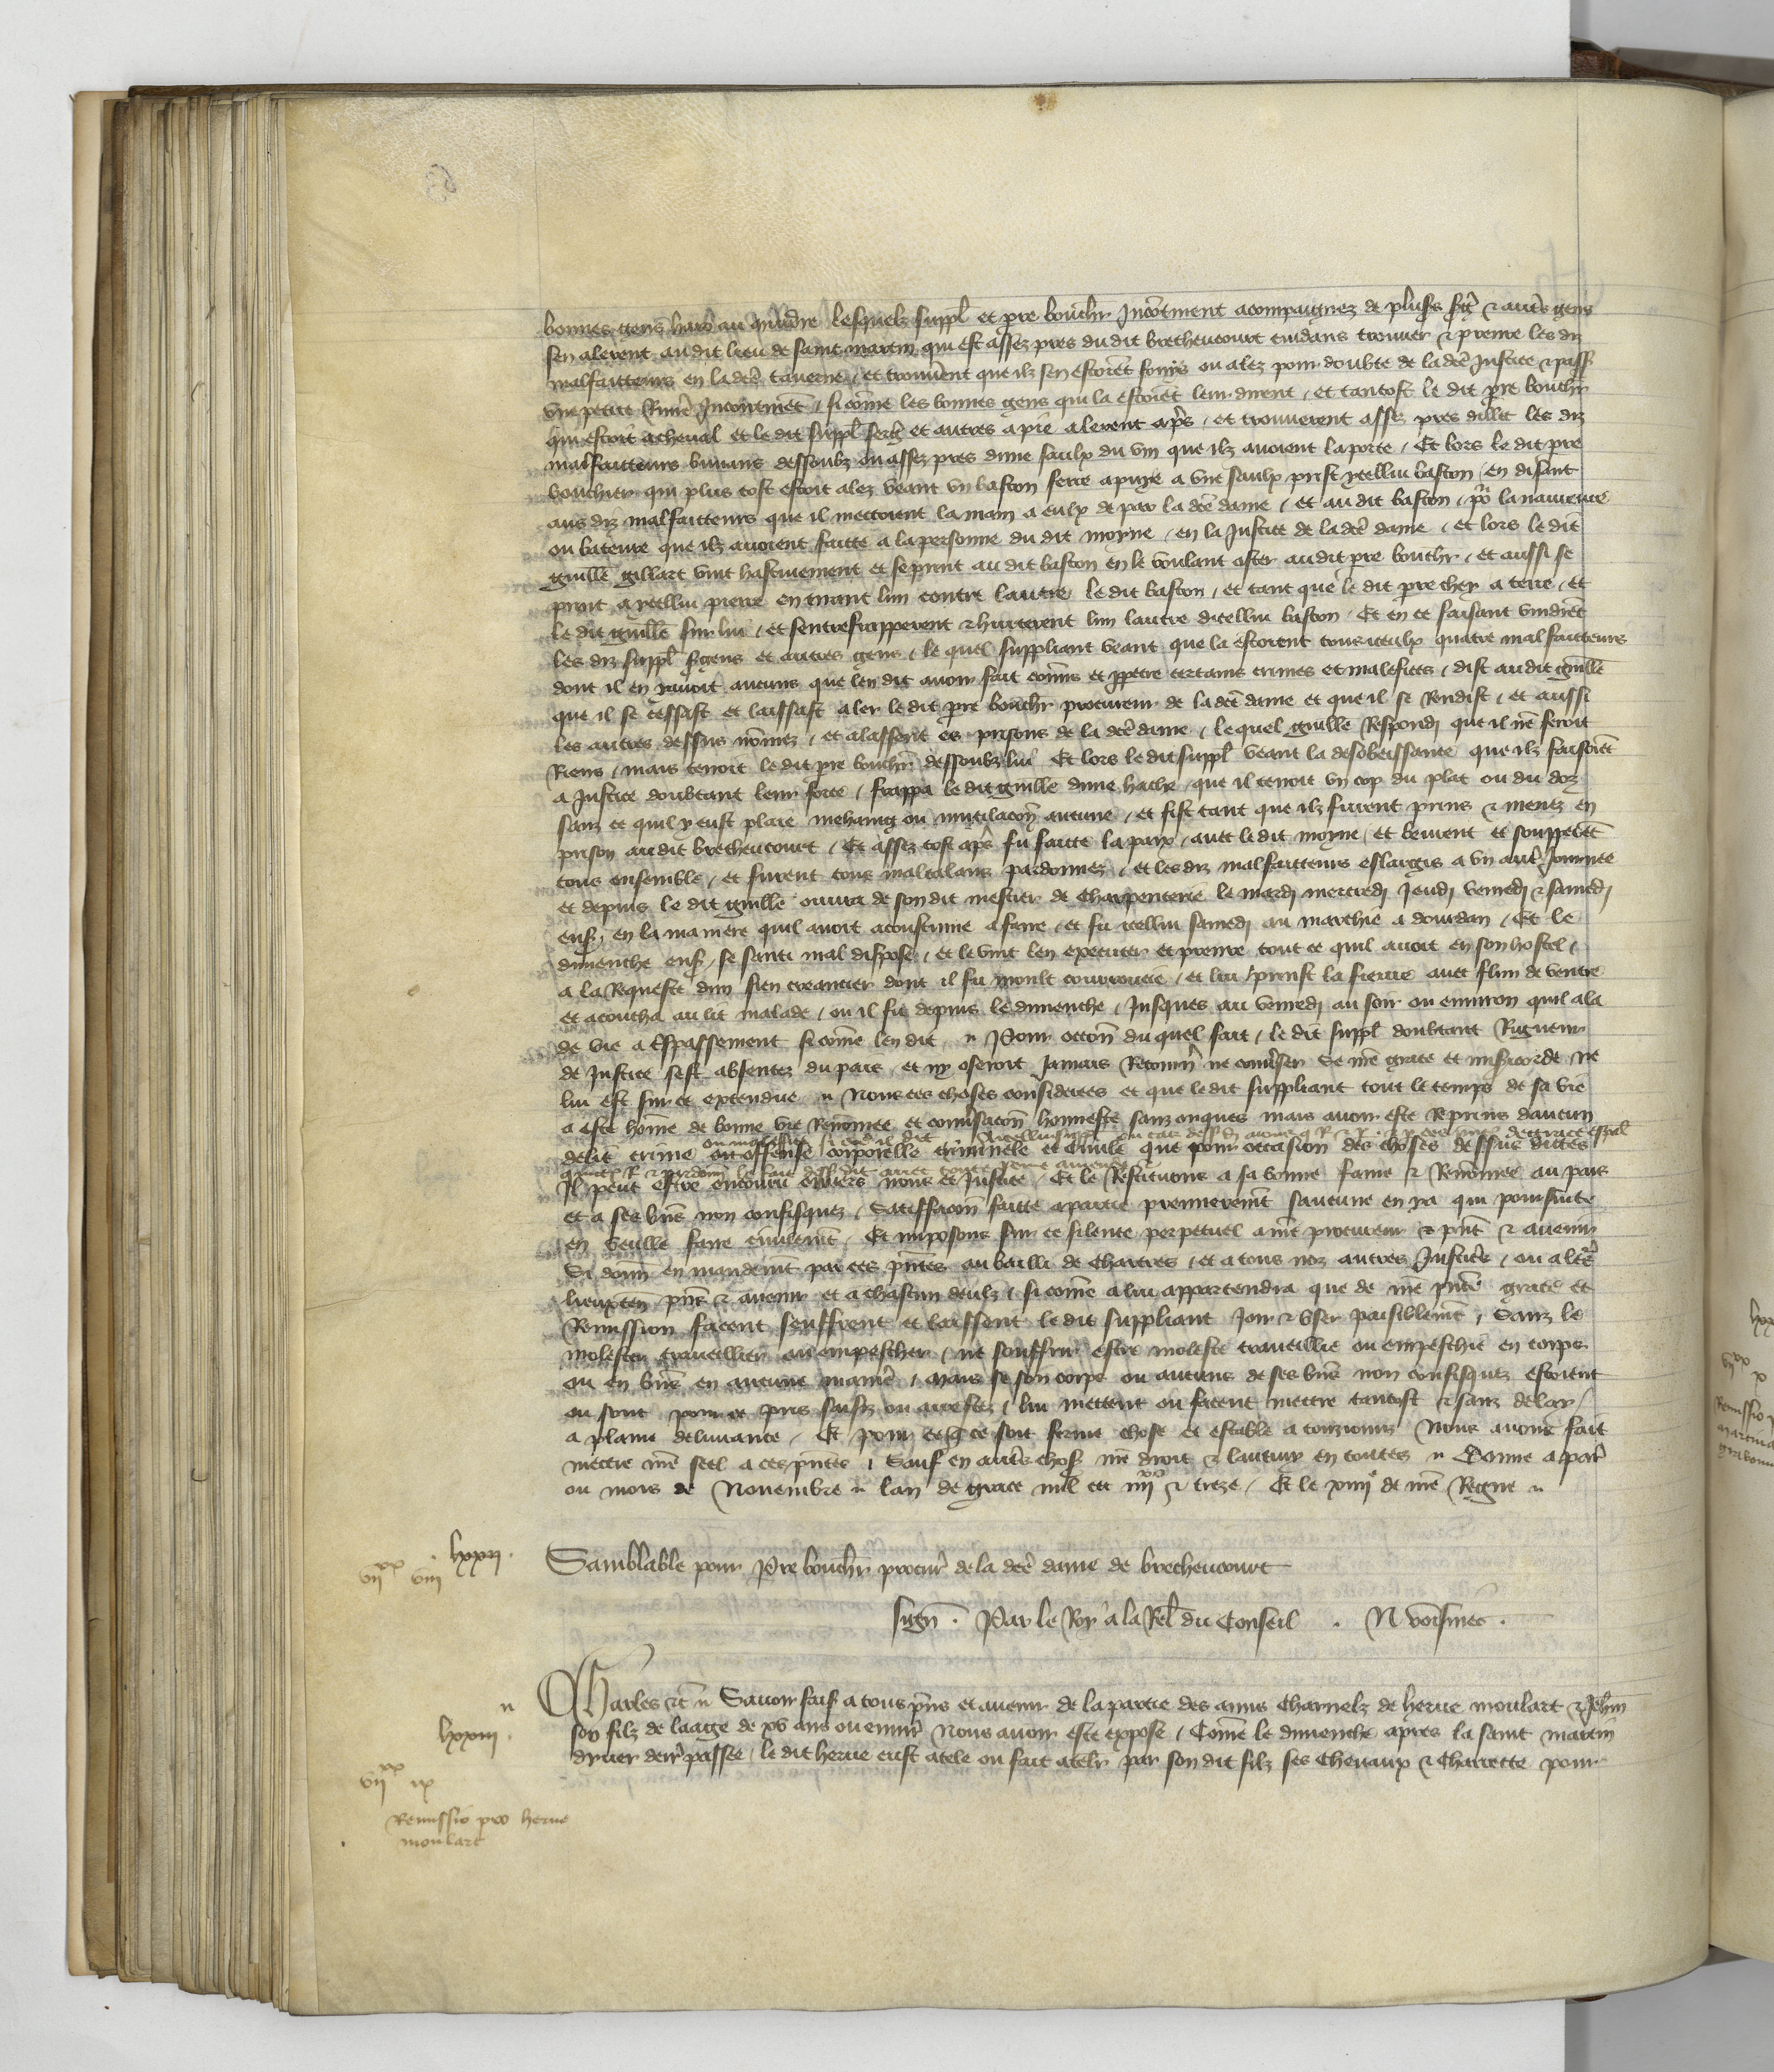 bonnes gens haro au murdre lesquelz suppl et pre bouchr Incontment acompaignez de plusrs sergs & autres gens
sen alerent audit lieu de saint martin qui est assez pres du dit brethencourt cuidans trouver & prenre les diz
malfaitteurs en la dce taverne / et trouverent que ilz sen estoiet fouys ou alez pour doubte de la dce Justice & passe
une petite Riviere Incontinent / si come les bonnes gens qui la estoiet leur dirent / et tantost le dit pre bouchr
qui estoit a cheval et le dit suppl serg et autres a pie alerent aps / et trouverent assez pres dillec les diz
malfaitteurs buvans dessoubz ou assez pres dune saulx du vin que ilz avoient la porte / Et lors le dit pre
bouchier qui plus tost estoit alez veant un baston ferre apuye a une saulx prist ycellui baston / en disant
aus diz malfaitteurs que il mettoient la main a eulx de par la dce dame / et au dit baston / por la navreure
ou bateure que ilz avoient faitte a la personne du dit moyne / en la Justice de la dce dame / et lors le dit
guille gillart vint hastivement et se print au dit baston en le voulant oster audit pre bouchr / et aussi se
print a ycellui pierre en tirant lun contre lautre le dit baston / et tant que le dit pre chey a terre / et
le dit guille sur lui / et sentrefrapperent & hurterent lun lautre dicellui baston / Et en ce faisant vindret
les diz suppl sergens et autres gens / le quel suppliant veant que la estoient tous iceulx quatre malfaitteurs
dont il en y avoit aucuns que len dit avoir fait comis et ppetre certains crimes et malefices / dist au dit guille
que il se cessast et laissast aler le dit pre bouchr procureur de la dce dame et que il se Rendist / et aussi
les autres dessus nomez / et alassent es prisons de la dce dame / lequel guille Respondi que il ne feroit
Riens / mais tenoit le dit pre bouchr dessoubz lui Et lors le dit suppl veant la desobeissance que ilz faisoiet
a Justice doubtant leur force / frappa le dit guille dune hache que il tenoit un cop du plat ou du doz
sanz ce quil y eust plaie mehaing ou mutilacon aucune / et fist tant que ilz furent prins & menez en
prison audit brethencourt / Et assez tost aps fu faitte la paix avec le dit moyne / et burent et souppet
tous ensemble / et furent tous maltalans pardonnez / et les diz malfaitteurs eslargis a un autre Journee
et depuis le dit guille ouvra de son dit mestier de charpenterie le mardi mercredi Jeudi venredi & samedi
ens / en la maniere quil avoit acoustume a faire / et fu icellui samedi au marchie a dourdan / Et le
dimenche ens / se santi mal dispose / et le vint len executer et prenre tout ce quil avoit en son hostel /
a la Requeste dun sien creancier dont il fu moult courroucie / et lui prinst la fievre avec flun de ventre
et acoucha au lit malade / ou il fu depuis le dimenche / Jusques au venredi au soir ou environ quil ala
de vie a Trespassement si come len dit // Pour occon du quel fait / le dit suppl doubtant Rigueur
de Justice sest absentez du pais et ny oseroit Jamais Retourner ne converser Se nre grace et misericorde ne
lui est sur ce extendue // Nous ces choses considerees et que le dit suppliant tout le temps de sa vie
a este home de bonne vie Renomee et conversacon honneste sanz onques mais avoir este Repreins daucun
delit crime ou offense corporelle criminele et civile que pour occasion des choses dessus dictes
Il peut estre encouru envers nous et Justice / Et le Restituons a sa bonne fame & Renomee au pais
et a ses biens non confisquez / Satisfacion faitte a partie premierement saucune en ya qui poursuite
en veulle faire civilement / Et imposons sur ce silence perpetuel a nre procureur & pnt & avenir
Si donn en mandemt par ces pntes au bailli de Chartres / et a tous noz autres Justiciers / ou a leurs
lieuxten pns & avenir et a chascun deulx / si come a lui appartendra que de nre pnte grace et
Remission facent seuffrent et laissent le dit suppliant Joir & user paisiblement / Sanz le
molester traveillier ou empescher / ne souffrir estre moleste traveillie ou empeschie en corps
ou en biens en aucune maniere / mais se son corps ou aucuns de ses biens non confisquez estoient
ou sont pour ce pris saisiz ou arrestez / lui mettent ou facent mettre tantost & sanz delay /
a plaine delivrance / Et pour ce q ce soit ferme chose et estable a tousjours Nous avons fait
mettre nre seel a ces pntes / Sauf en autres chos nre droit & lautruy en toutes // Donne a par
ou mois de Novembre // lan de grace mil ccc iiiixx & treze / Et le xiiiie de nre Regne //
lxxii.
viixx viii
Samblable pour Pre bouchr procur de la dce dame de brethencourt
sign . Par le Roy a la Rel du Conseil . N voisines .
Charles &c // Savoir fais a tous pns et avenir de la partie des amis Charnelz de herve moulart & Jehan
lxxiii .
son filz de laage de xv ans ou envir Nous avoir este expose / Come le dimenche apres la saint martin
dyver derr passee / le dit herve eust atele ou fait ateler par son dit filz ses Chevaux & Charrette pour
viixx ix
Remissio pro herve
moulart